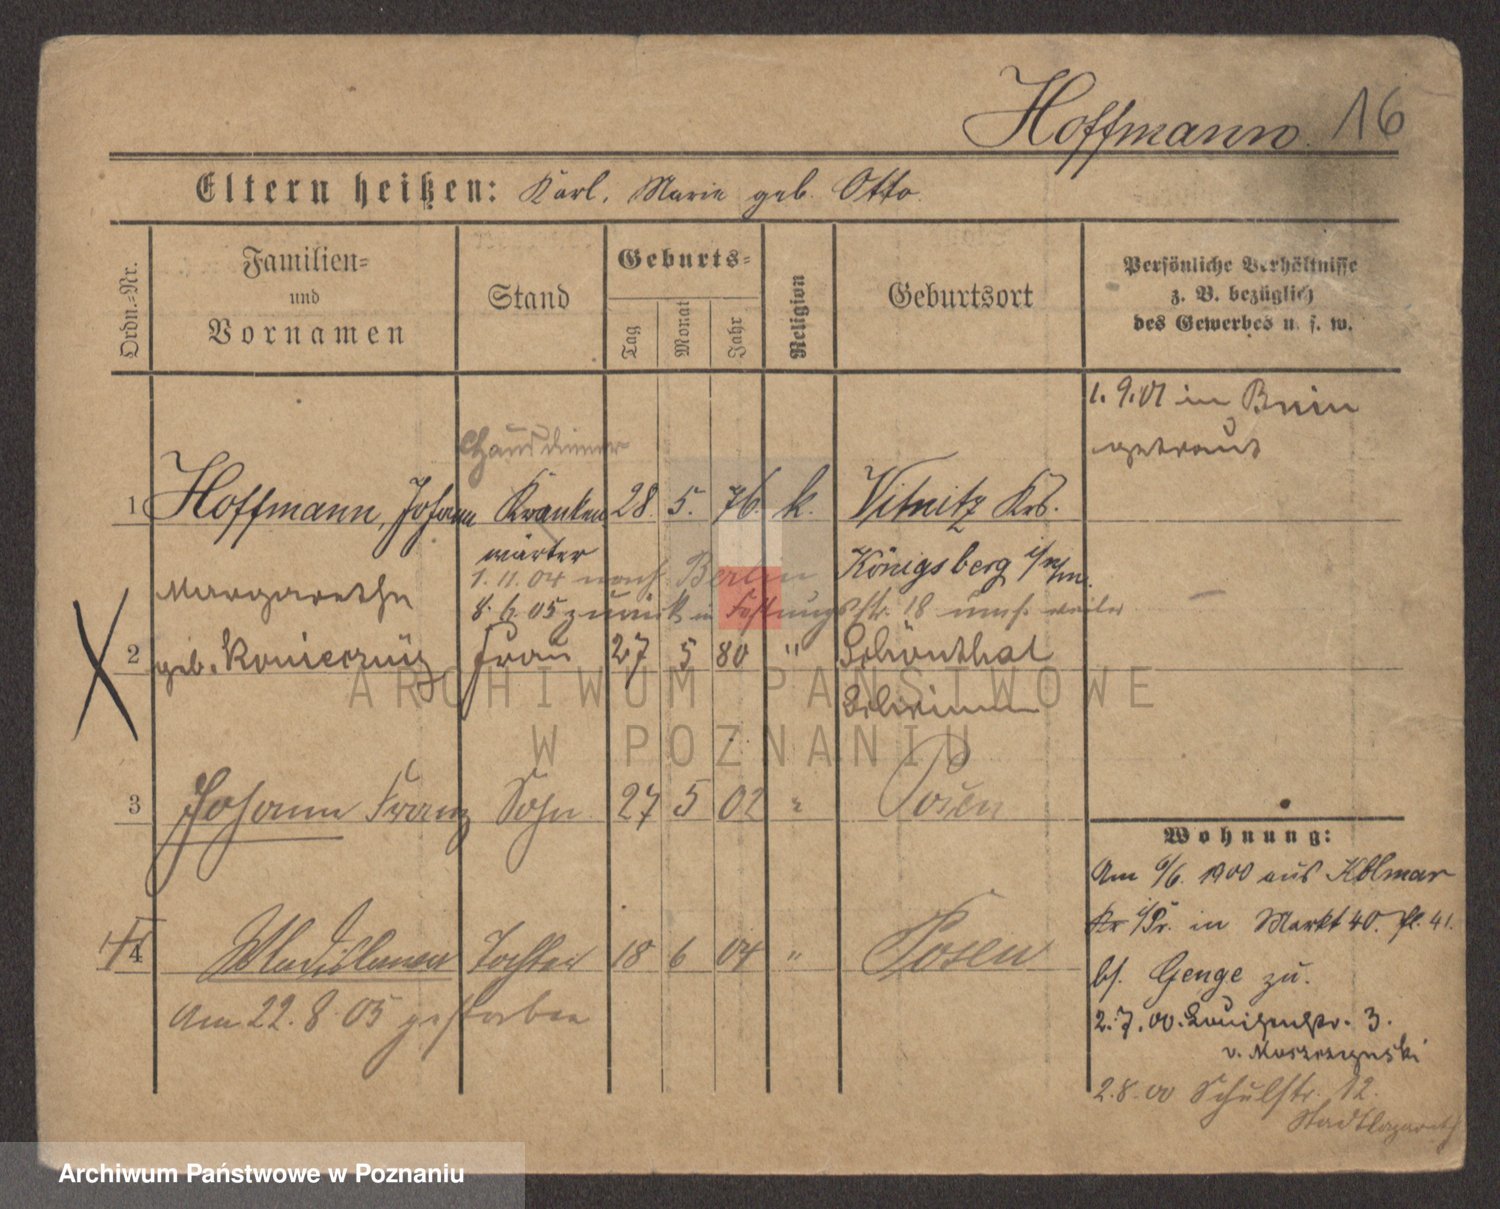 Hoffmann. 16
Eltern heißen: Karl, Marie geb. Otto.
Ordn.-Nr.
Familien-
und
Vornamen
Stand
Geburts-
Tag
Monat
Jahr
Religion
Geburtsort
Persönliche Verhältnisse
z. B. bezüglich
des Gewerbes u. s. w.
1. 9. 01 in Bnin
getraut
Hausdiener
1 Hoffmann, Johann Kranken 28. 5. 76. k. Vitnitz Krs.
wärter Königsberg i/Nm.
1. 11. 04 nach Berlin
Margarethe
8. 6. 05 zurück in Festungsstr. 18
2 geb. Konieczny Frau 27 5 80 " Schönthal
Schrimm
3 Johann Franz Sohn 27 5 02 " Posen
4 Wladislawa Tochter 18 6 04 " Posen
Am 22. 8. 05 gestorben
Wohnung:
Am 6/6. 1900 aus Kolmar
Kr i/Pr. in Markt 40.
bf. Genge zu.
2. 7. 00. Louisenstr. 3.
v.
2. 8. 00 Schulstr. 12.
Stadtlazareth
ARCHIWUM PAŃSTWOWE
W POZNANIU
Archiwum Państwowe w Poznaniu